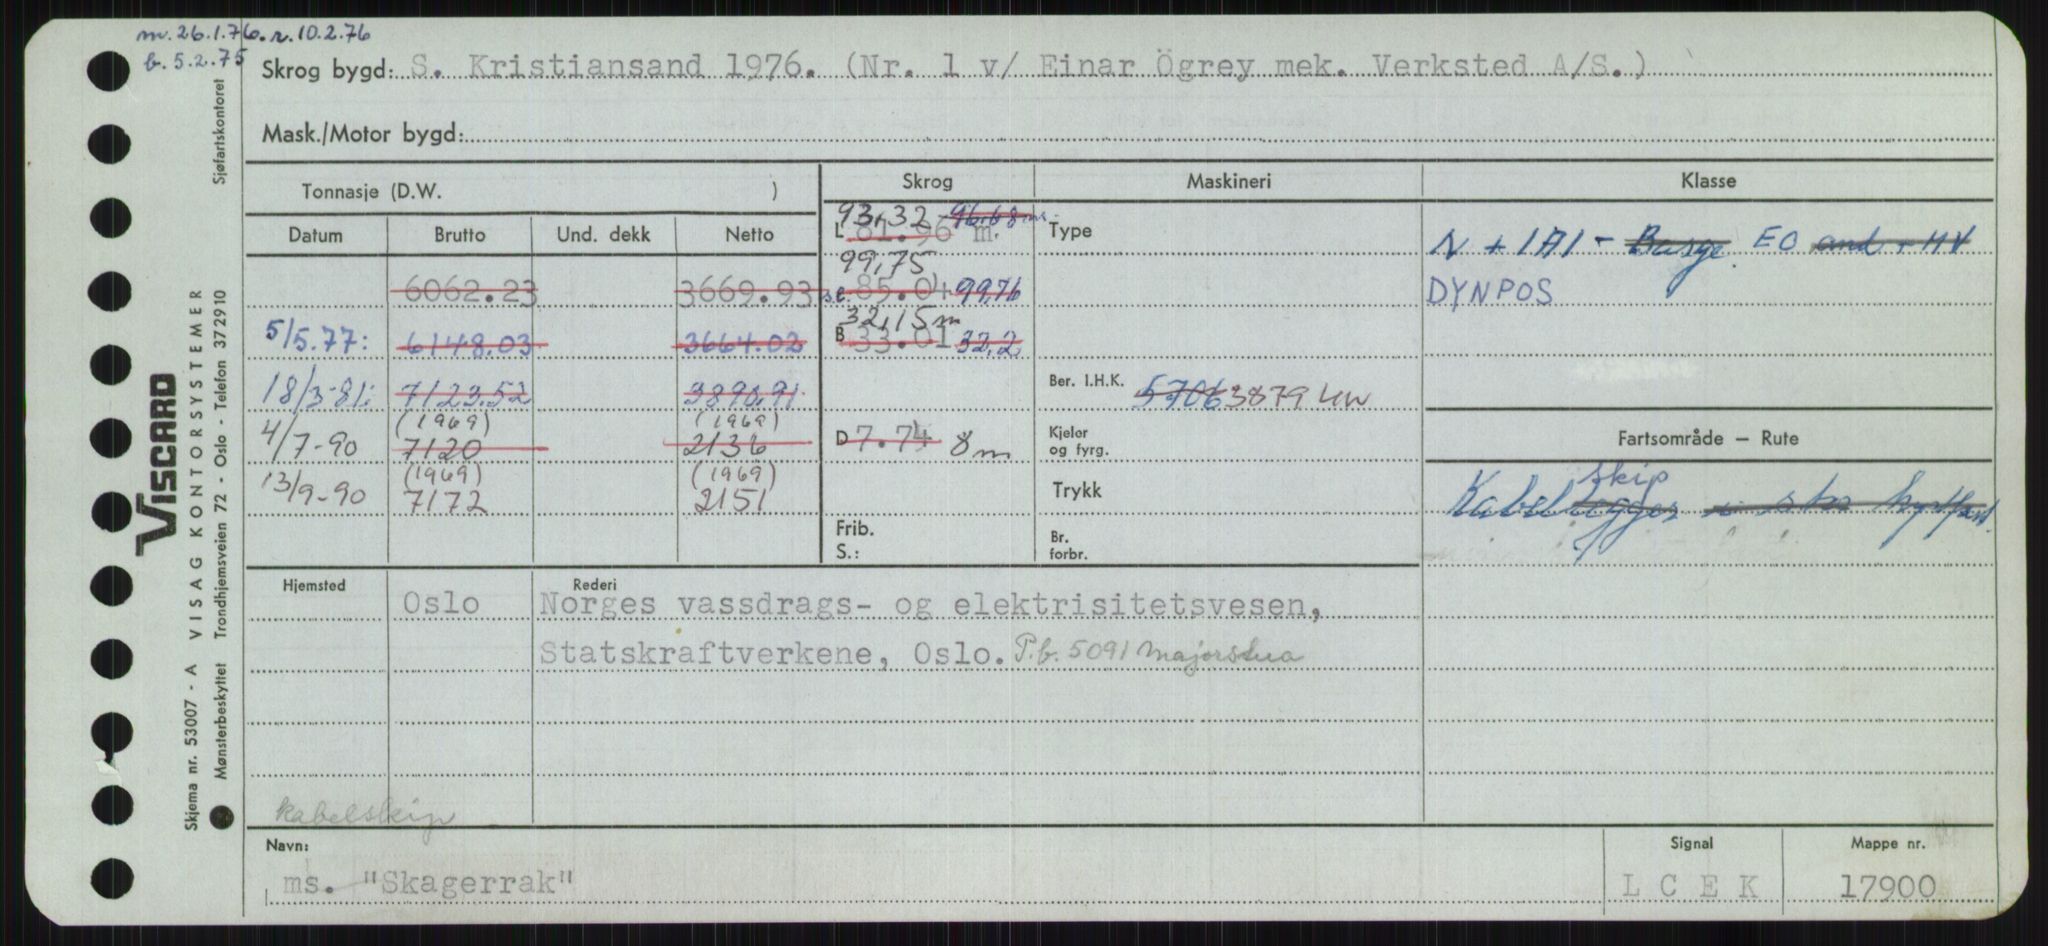 m. 26.1.76. r. 10.2.76
b. 5.2.75
Skrog bygd: S. Kristiansand 1976. (Nr. 1 v/ Einar Ögrey mek. Verksted A/S.)
Mask./Motor bygd:
Tonnasje (D.W. )
Skrog
Maskineri
Klasse
Datum
Brutto
Und. dekk
Netto
93,32 96,68 m.
L 81.96 m.
Type
N + 1A1 - Barge EO and + HV
99,75
6062.23 3669.93 s.l. 85.04 99,76
DYNPOS
32,15 m
5/5.77: 6148.03 3664.02 B 33.01 32,2
18/3-81: 7123.52 3890.91
Ber. I.H.K. 5706 3879 kW
(1969) (1969)
4/7-90 7120 2136 D 7.74 8m
Kjeler
og fyrg.
Fartsområde — Rute
(1969) (1969)
13/9-90 7172 2151
Trykk
skip
Kabellegger
Frib.
S.:
Br.
forbr.
Hjemsted
Rederi
Oslo Norges vassdrags- og elektrisitetsvesen,
Statskraftverkene, Oslo. P.b. 5091 Majorstua
kabelskip
Navn:
ms. "Skagerrak"
Signal
L C E K
Mappe nr.
17900
VISCARD
Skjema nr. 53007 - A VISAG KONTORSYSTEMER
Mønsterbeskyttet Trondhjemsveien 72 - Oslo - Telefon 372910 Sjøfartskontoret